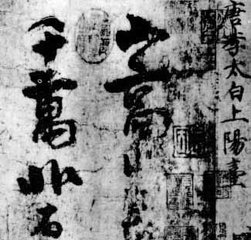 唐李太白上陽臺
山高水長
千萬非有